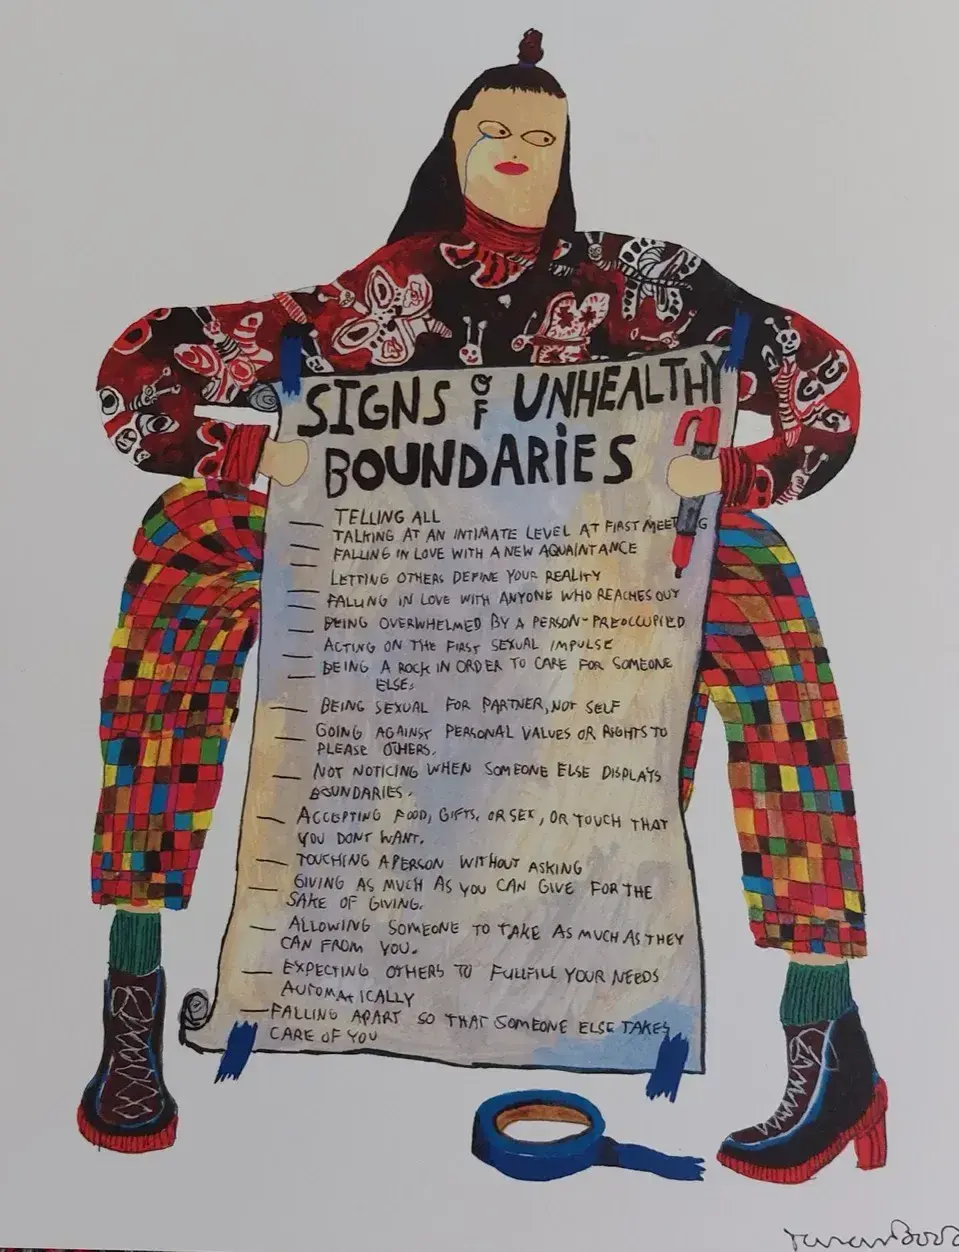 SIGNS OF UNHEALTHY
BOUNDARIES
TELLING ALL
TALKING AT AN INTIMATE LEVEL AT FIRST MEETING
FALLING IN LOVE WITH A NEW AQUAINTANCE
LETTING OTHERS DEFINE YOUR REALITY
FALLING IN LOVE WITH ANYONE WHO REACHES OUT
BEING OVERWHELMED BY A PERSON-PREOCCUPIED
ACTING ON THE FIRST SEXUAL IMPULSE
BEING A ROCK IN ORDER TO CARE FOR SOMEONE
ELSE.
BEING SEXUAL FOR PARTNER, NOT SELF
GOING AGAINST PERSONAL VALUES OR RIGHTS TO
PLEASE OTHERS.
NOT NOTICING WHEN SOMEONE ELSE DISPLAYS
BOUNDARIES.
ACCEPTING FOOD, GIFTS, OR SEX, OR TOUCH THAT
YOU DONT WANT.
TOUCHING A PERSON WITHOUT ASKING
GIVING AS MUCH AS YOU CAN GIVE FOR THE
SAKE OF GIVING.
ALLOWING SOMEONE TO TAKE AS MUCH AS THEY
CAN FROM YOU.
EXPECTING OTHERS TO FULLFILL YOUR NEEDS
AUTOMATICALLY
FALLING APART SO THAT SOMEONE ELSE TAKES
CARE OF YOU